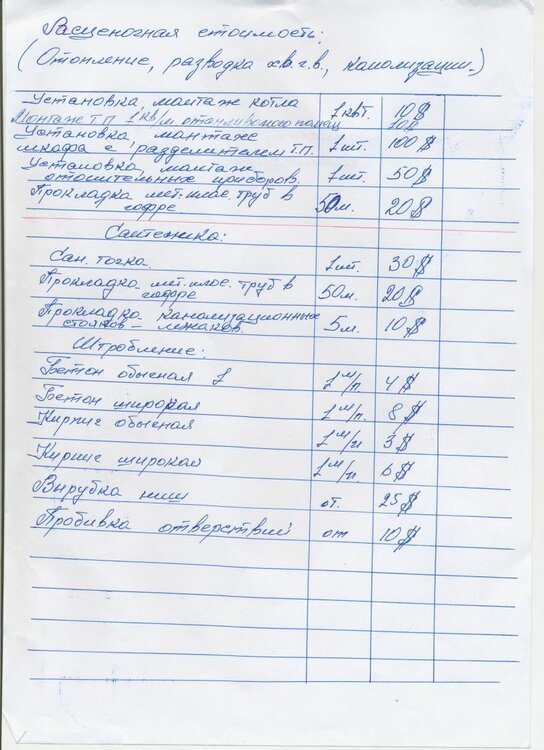 Расценочная стоимость:
(Отопление, разводка хв.г.в., канализации.)
Установка, монтаж котла 1 квт. 10$
Монтаж Т.П 1 кв/м отапливаемого помещ 10$
Установка монтаж
шкафа с разделителем Т.П. 1 шт. 100$
Установка, монтаж
отопительных приборов 1 шт. 50$
Прокладка мет.плас. труб в
гофре 50м. 20$
Сантехника:
Сан. точка. 1 шт. 30$
Прокладка мет.плас. труб в
гофре 50м. 20$
Прокладка канализационные
стояков - лежаков. 5м. 10$
Штробление:
Бетон обычная 1 м/п. 4$
Бетон широкая 1 м/п. 8$
Кирпич обычная 1 м/п 3$
Кирпич широкая 1 м/п 6$
Вырубка ниш от. 25$
Пробивка отверствий от 10$